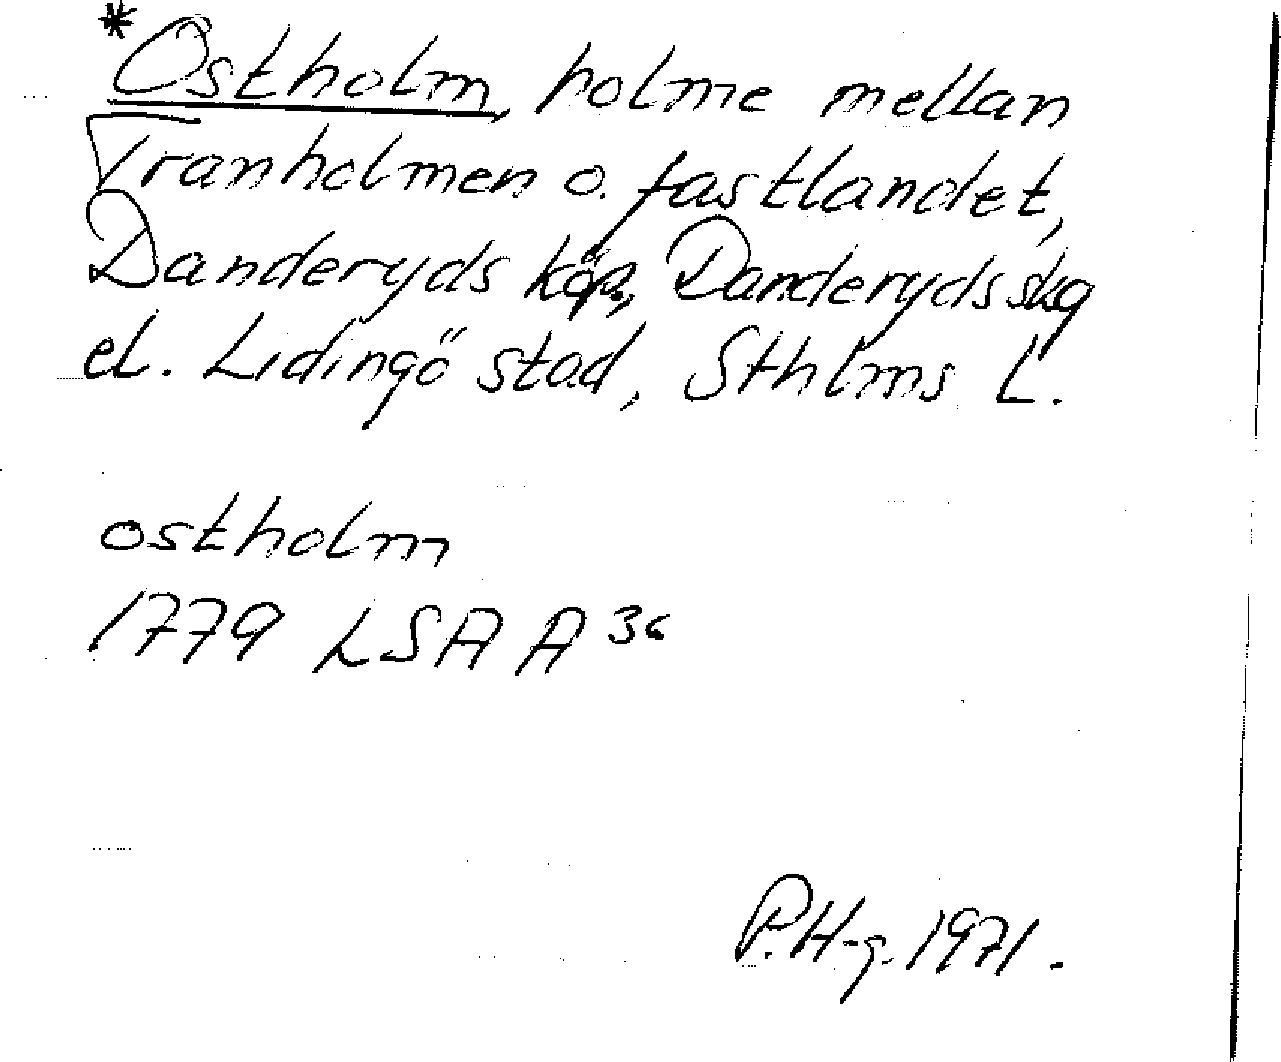 *Ostholm, holme mellan
Tranholmen o. fastlandet,
Danderyds köp., Danderyds skg
el. Lidingö stad, Sthlms L.
ostholm
1779 LSA A 36
P.H-g. 1971.